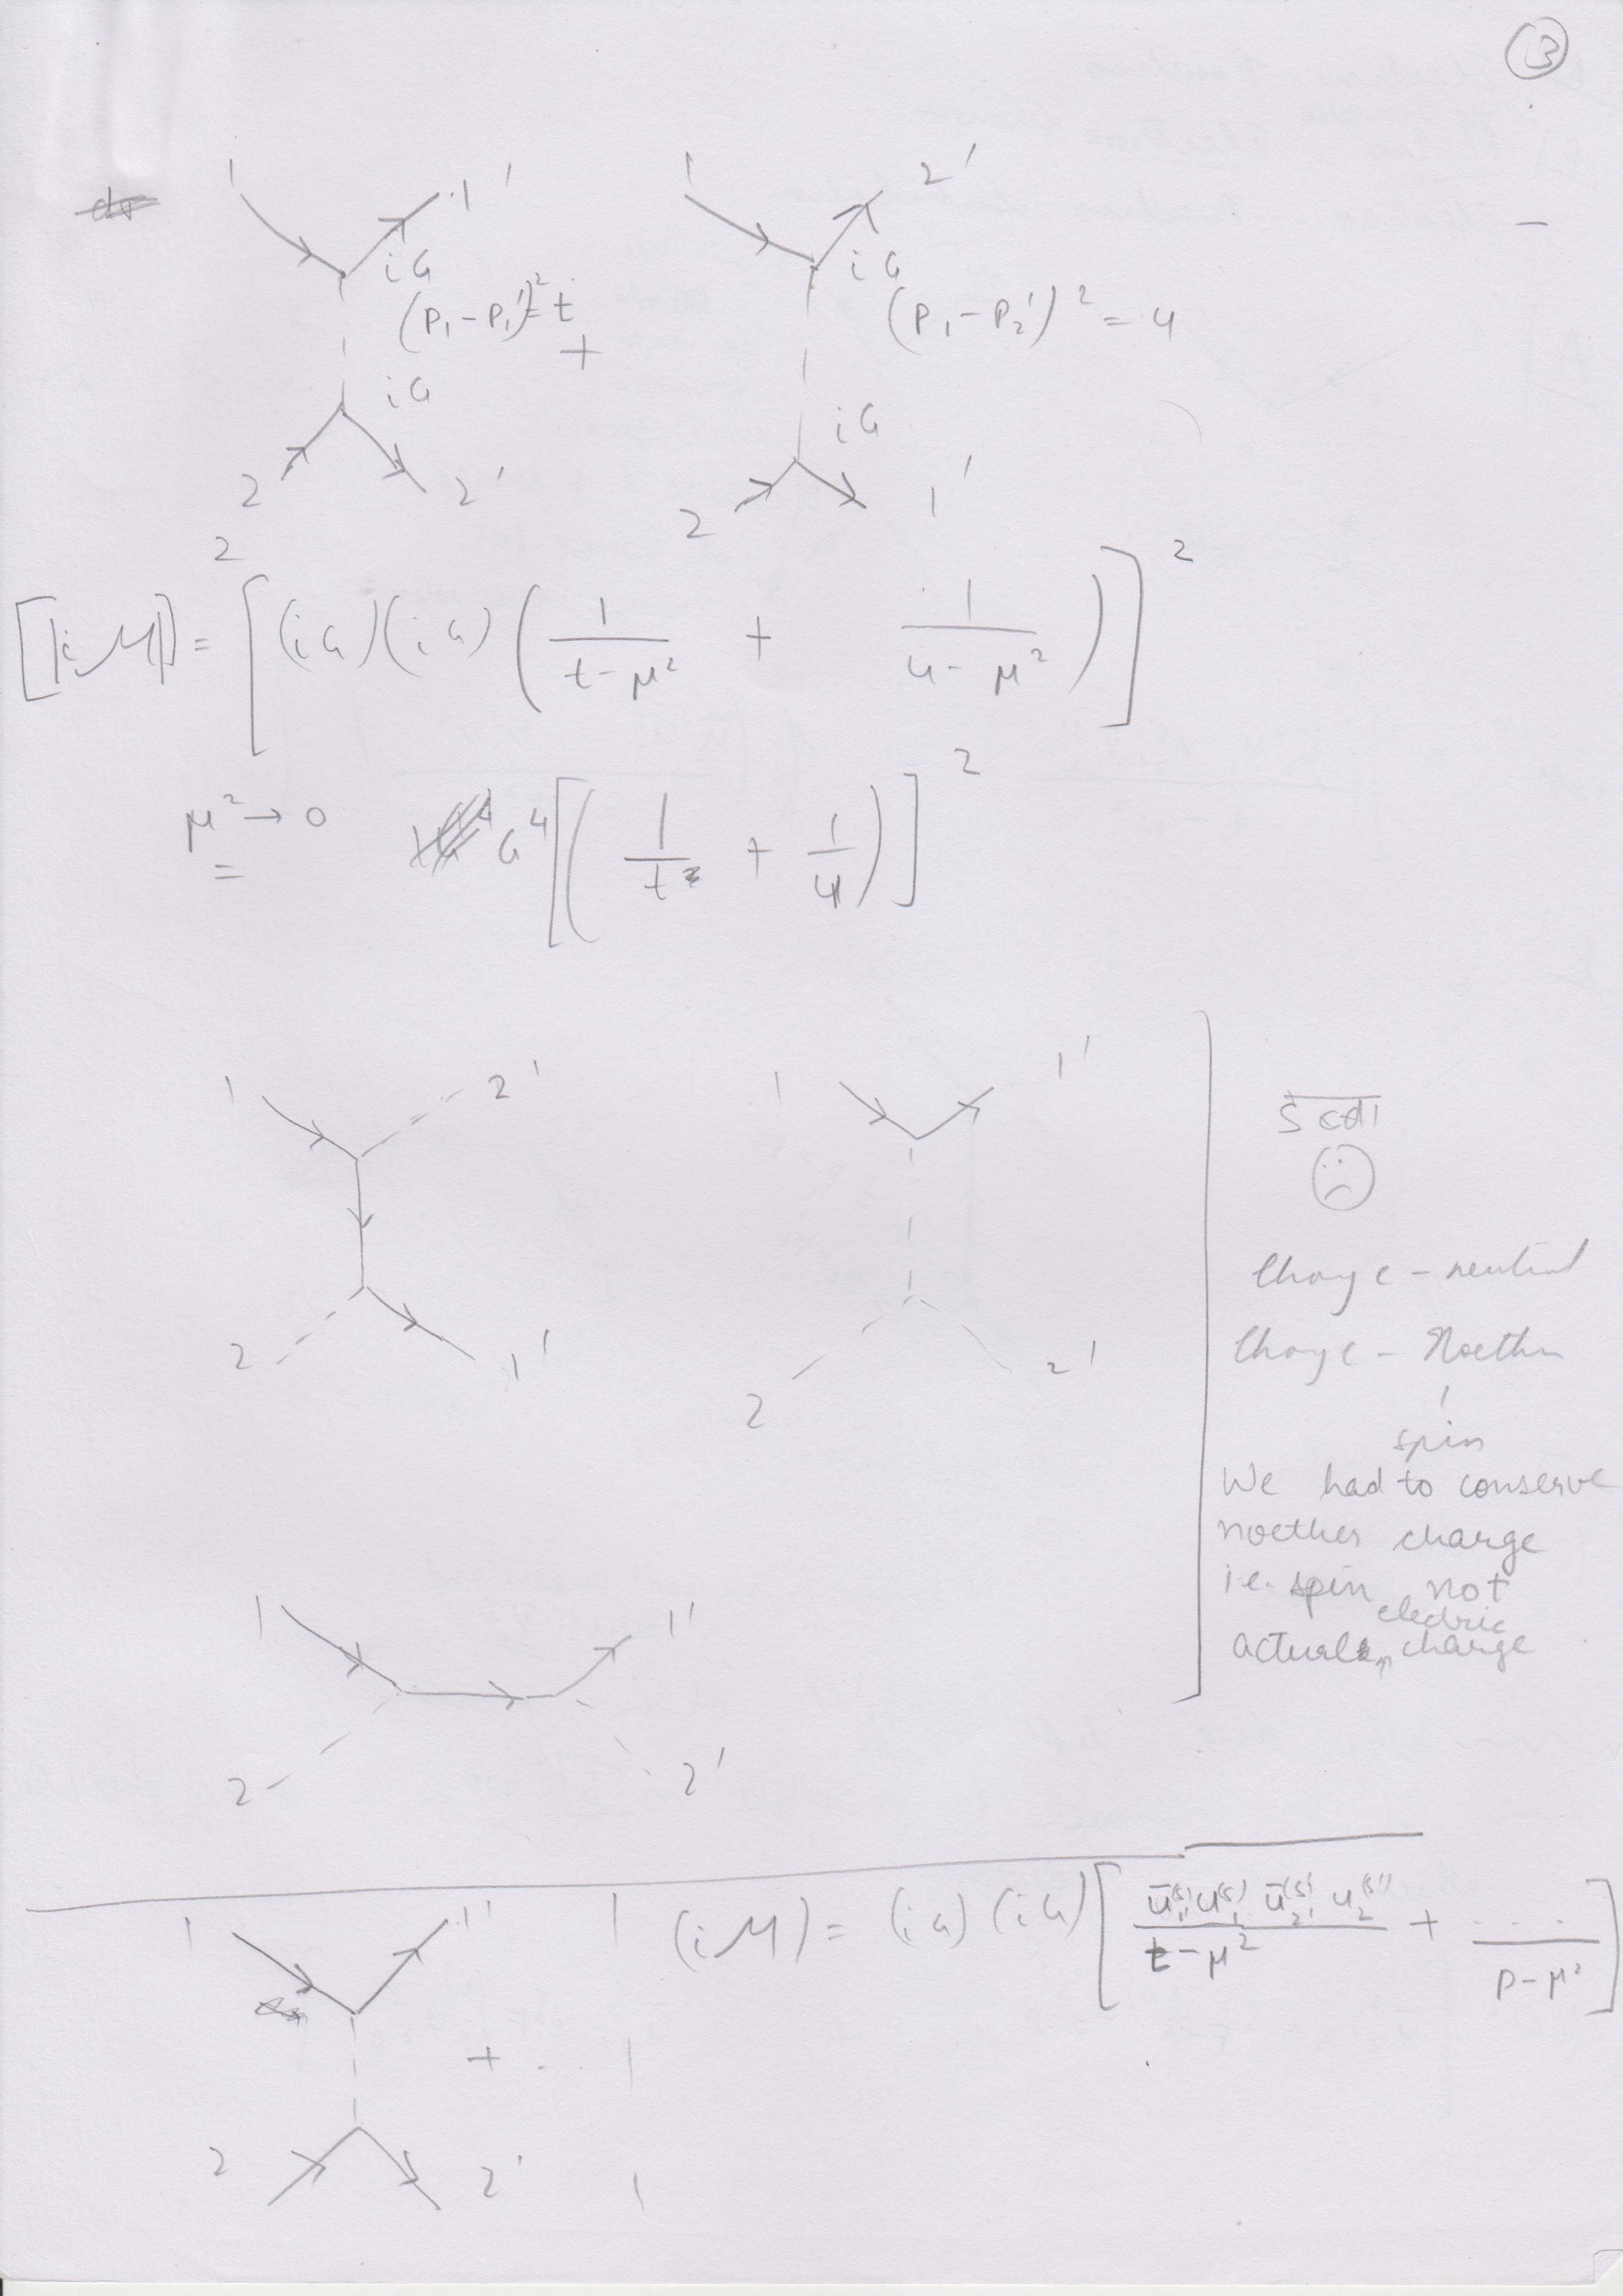 3
1 1' 1 2'
iG iG
(P₁-P₁')²=t + (P₁-P₂')² = u
iG iG
2 2' 2 1'
[|iM|]² = [(iG)(iG)(1/(t-μ²) + 1/(u-μ²))]²
μ²→0
= G⁴[(1/t + 1/u)]²
1 2' 1 1'
2 1' 2 2'
Charge - neutral
Charge - Noether
spin
We had to conserve
noether charge
i.e. spin not
electric
actual charge
1 1'
2 2'
1 1' (iM) = (iG)(iG)[ū₁'⁽ˢ'⁾u₁⁽ˢ⁾ ū₂'⁽ˢ'⁾u₂⁽ˢ'⁾/(t-μ²) + .../(p-μ²)]
+ ..
2 2'